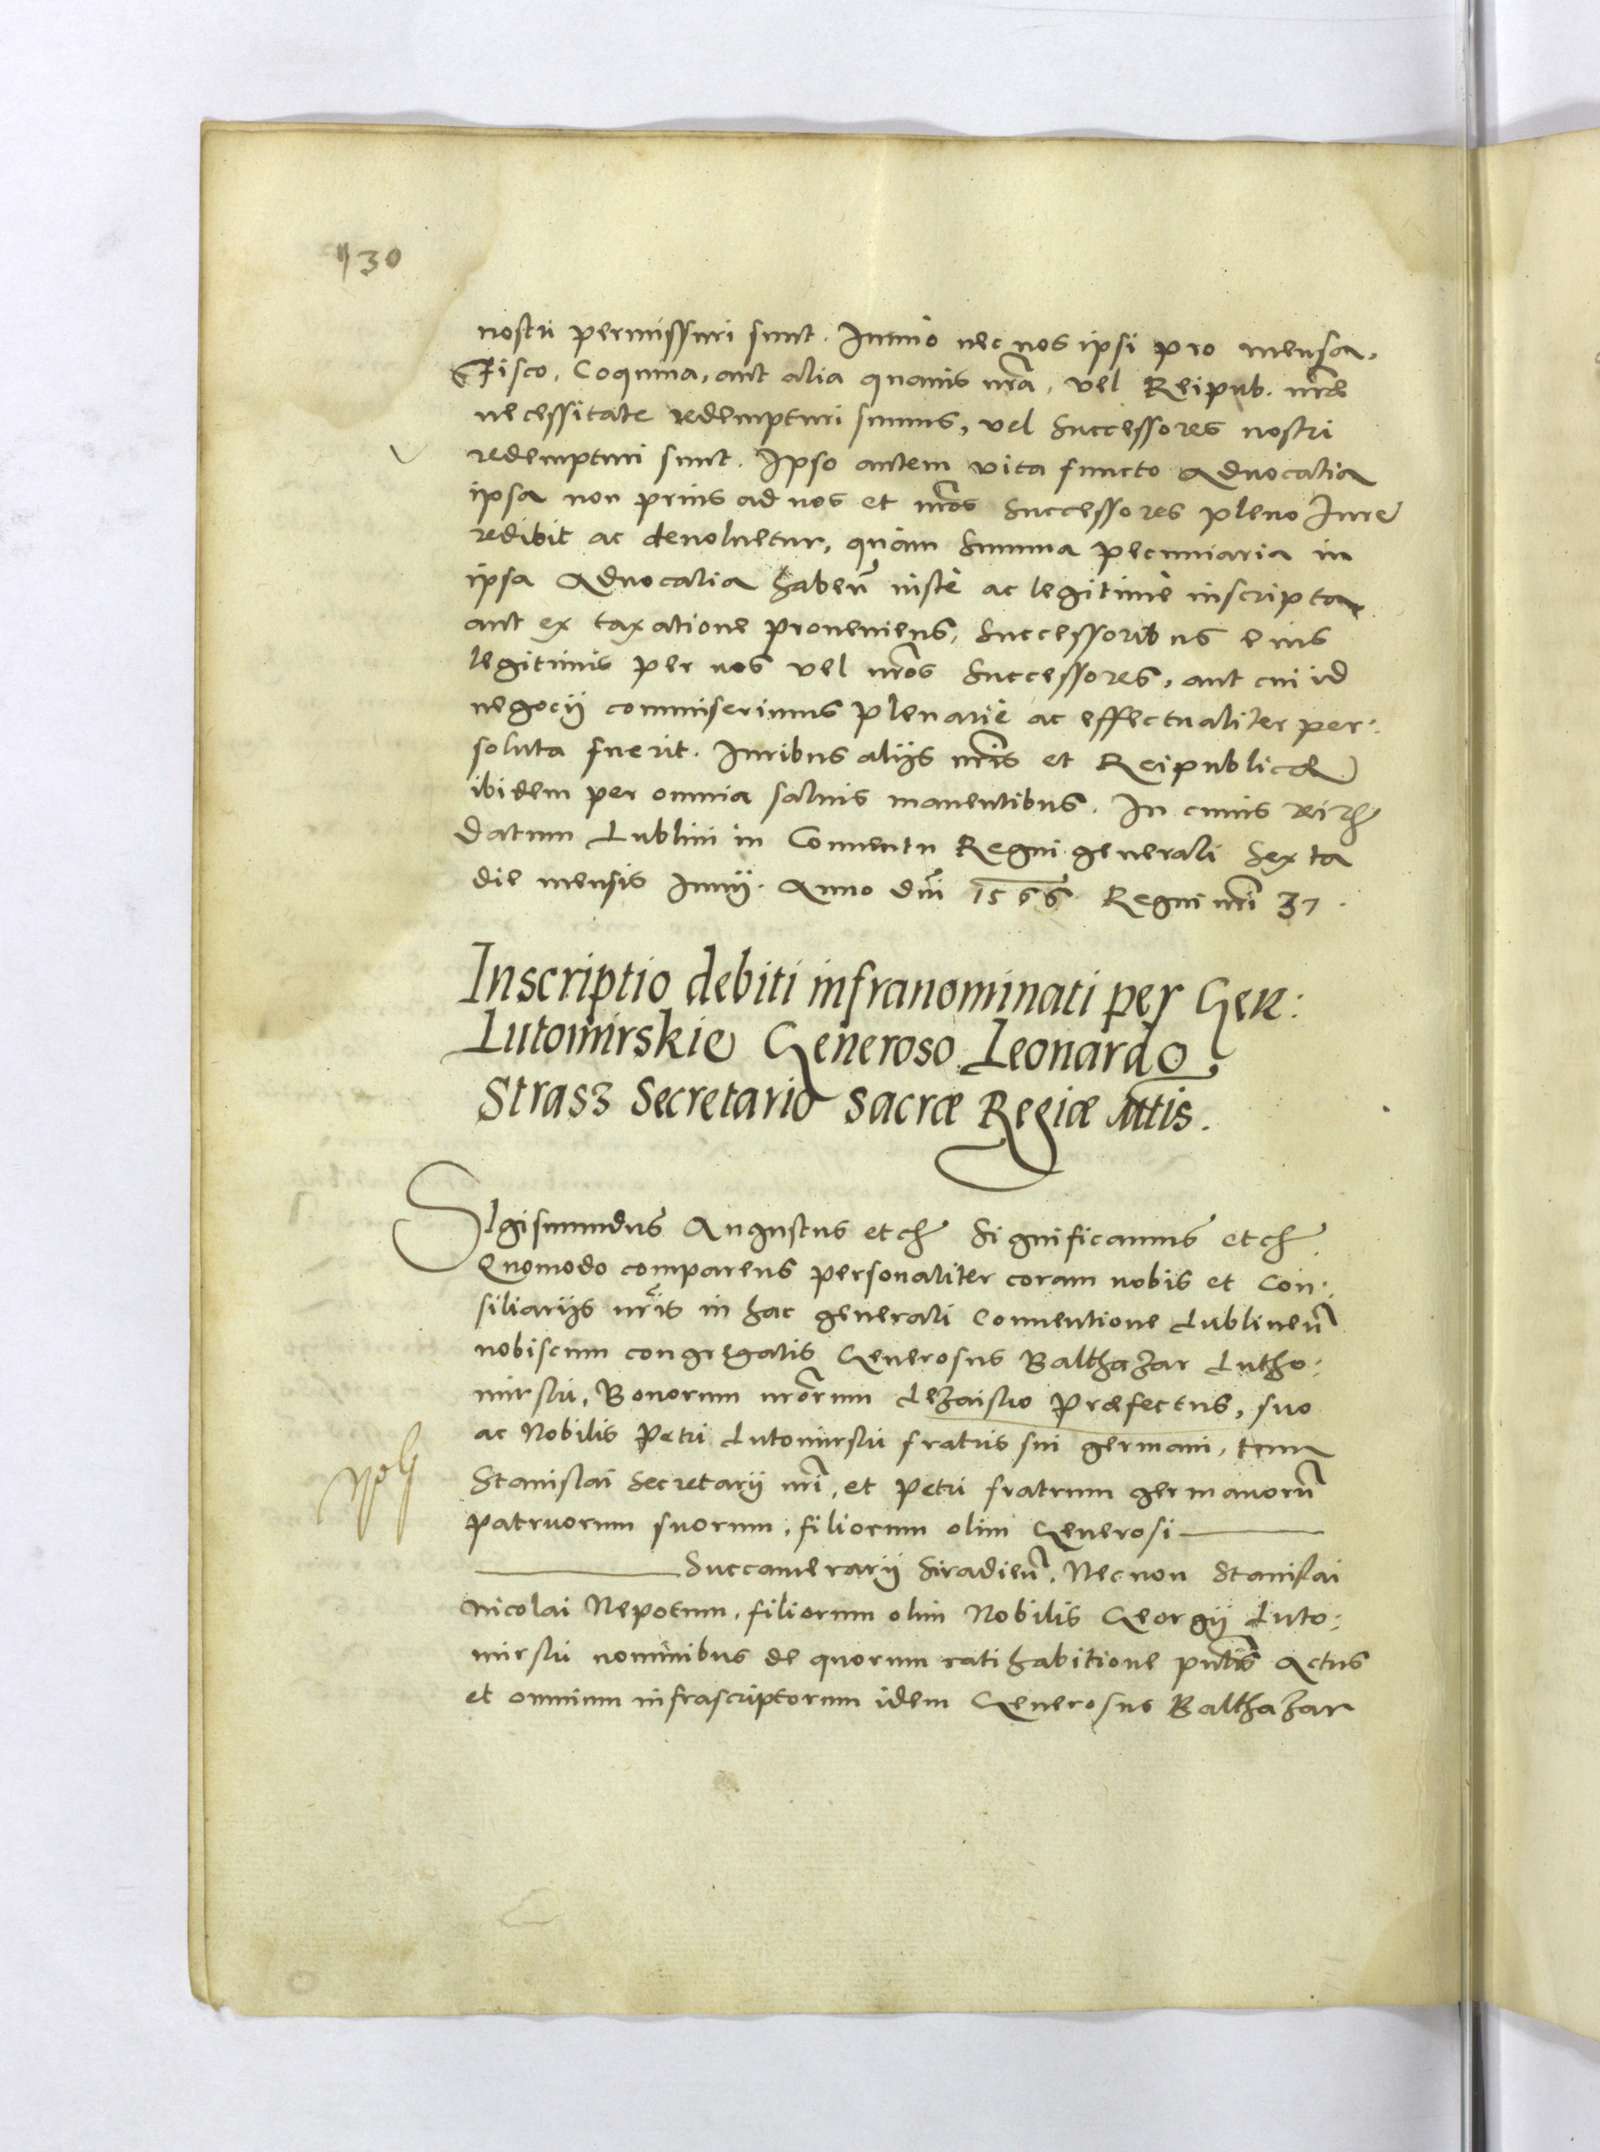 130
nostri permissuri sunt. Immo nec nos ipsi pro mensa,
Fisco, Coquina, aut alia quavis nrã, vel Reipub. nrãe
necessitate redempturi sumus, vel Successores nostri
redempturi sunt. Ipso autem vita functo Advocatia
ipsa non prius ad nos et nrõs Successores pleno Iure
redibit ac devolvetur, quàm Summa pecuniaria in
ipsa Advocatia habeñ iustè ac legitimè inscripta
aut ex taxatione proveniens, Successoribus eius
legitimis per nos vel nrõs Successores, aut cui id
negocÿ commiserimus plenariè ac effectualiter per:
soluta fuerit. Iuribus alÿs nrĩs et Reipublicæ
ibidem per omnia salvis manentibus. In cuius rei
Datum Lublini in Conventu Regni generali Sexta
die mensis Iunÿ. Anno dñi 1566 Regni nrĩ 37.
Inscriptio debiti infranominati per Gen:
Lutomirskie Generoso Leonardo
Strasz Secretario Sacræ Regiæ Mttis.
SIgismundus Augustus etc Significamus etc
Quomodo comparens personaliter coram nobis et Con:
siliarÿs nrĩs in hac generali Conventione Lublineñ
nobiscum congregatis Generosus Balthazar Lutho:
mirski, Bonorum nrõrum Lezaisko Præfectus, suo
ac Nobilis Petri Lutomirski fratris sui germani, tum
Stanislai Secretarÿ nrĩ, et Petri fratrum germanorũ
patruorum suorum, filiorum olim Generosi
Succamerarÿ Siradieñ, Necnon Stanislai
Nicolai Nepotum, filiorum olim Nobilis Georgÿ Luto:
mirski nominibus de quorum ratihabitione pñtis Actus
et omnium infrascriptorum idem Generosus Balthazar